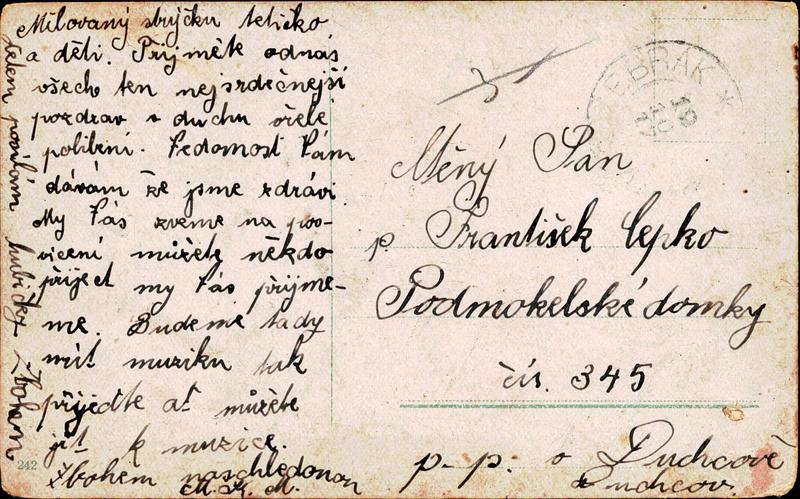 Milovaný strýčku tetičko
a děti. Přijměte odnás
všech ten nejsrdečnejší
pozdrav v duchu vřelé
políbení. Vědomost Vám
dávám že jsme zdrávi.
My Vás zveme na pos-
vícení můžete někdo
přijet my Vás přijme-
me. Budeme tady
mít muziku tak
přijeďte ať můžete
jít k muzice.
Zbohem naschledanou
všem posílám hubičky Zbohem
242
EBRÁK *
19
10
17
Ctěný Pan
p František Cepko
Podmokelské domky
čís. 345
p.p. o Duchcově
Duchcov